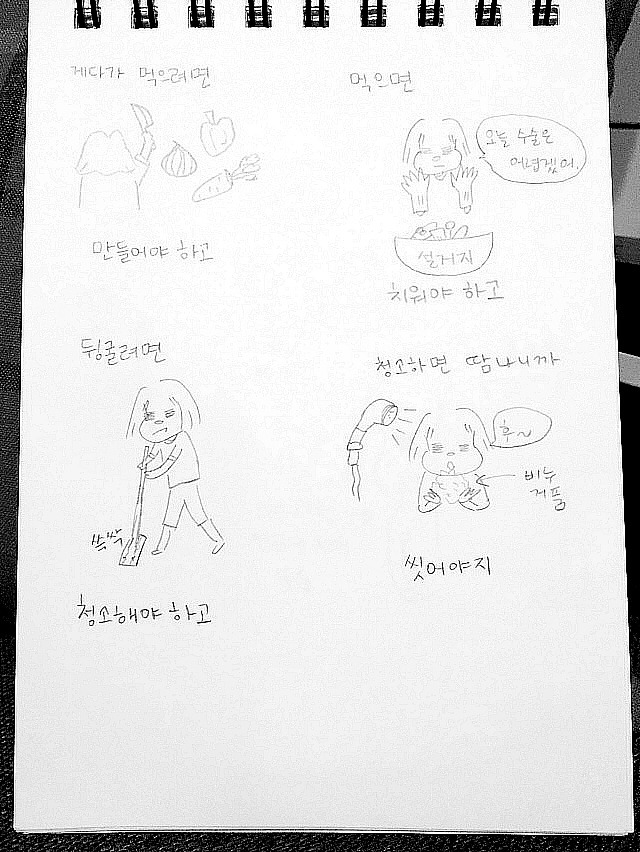 게다가 먹으려면
만들어야 하고
먹으면
오늘 수술은
어렵겠어.
설거지
치워야 하고
뒹굴려면
쓱싹
청소해야 하고
청소하면 땀나니까
후~
비누
거품
씻어야지